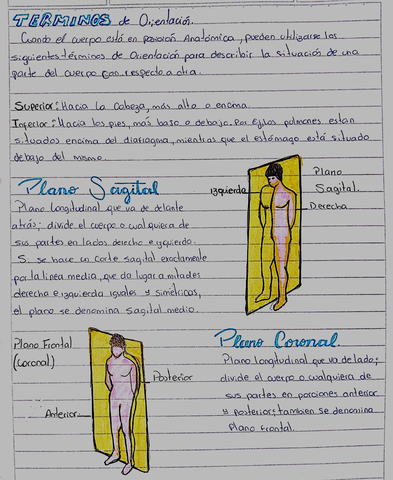 TERMINOS de Orientación.
Cuando el cuerpo está en posición Anatómica, pueden utilizarse los
siguientes términos de Orientación para describir la situación de una
parte del cuerpo con respecto a otra.
Superior: Hacia la Cabeza, más alto o encima.
Inferior: Hacia los pies, más bajo o debajo. Por Ej; los pulmones están
situados encima del diafragma, mientras que el estómago está situado
debajo del mismo.
Plano Sagital
Plano longitudinal que va de delante
atrás; divide el cuerpo o cualquiera de
sus partes en lados derecho e izquierdo.
S. se hace un corte sagital exactamente
por la linea media, que da lugar a mitades
derecha e izquierda iguales y simétricas,
el plano se denomina sagital medio.
Izquierda
Plano
Sagital.
Derecha
Plano Frontal
(Coronal)
Posterior
Anterior
Plano Coronal.
Plano longitudinal que va de lado;
divide el cuerpo o cualquiera de
sus partes en porciones anterior
y posterior; tambien se denomina
Plano frontal.